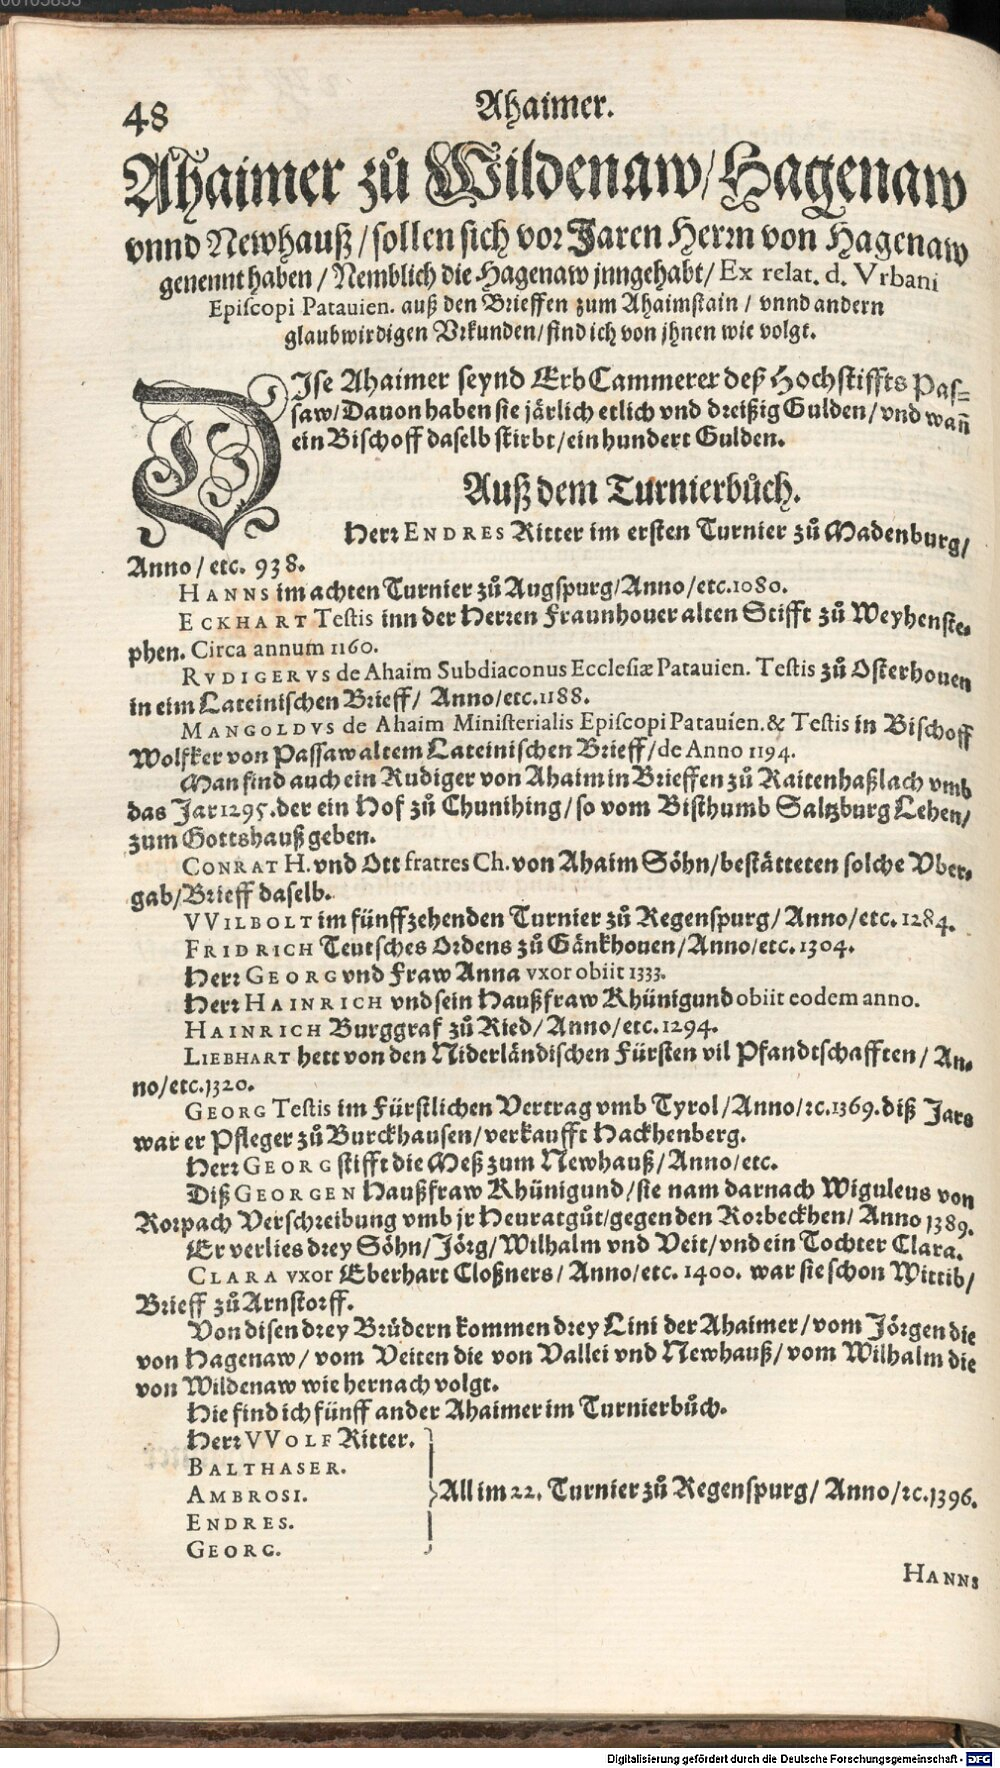 48
Ahaimer.
Ahaimer zů Wildenaw/Hagenaw
vnnd Newhauß/sollen sich vor Jaren Herrn von Hagenaw
genennt haben/Nemblich die Hagenaw jnngehabt/Ex relat. d. Vrbani
Episcopi Patauien. auß den Brieffen zum Ahaimstain/vnnd andern
glaubwirdigen Vrkunden/find ich von jhnen wie volgt.
DIse Ahaimer seynd ErbCammerer deß Hochstiffts Pas-
saw/Dauon haben sie järlich etlich vnd dreißig Gulden/vnd wañ
ein Bischoff daselb stirbt/ein hundert Gulden.
Auß dem Turnierbůch.
Herr ENDRES Ritter im ersten Turnier zů Madenburg/
Anno/etc. 938.
HANNS im achten Turnier zů Augspurg/Anno/etc.1080.
ECKHART Testis inn der Herren Fraunhouer alten Stifft zů Weyhenste-
phen. Circa annum 1160.
RVDIGERVS de Ahaim Subdiaconus Ecclesiæ Patauien. Testis zů Osterhouen
in eim Lateinischen Brieff/ Anno/etc.1188.
MANGOLDVS de Ahaim Ministerialis Episcopi Patauien.& Testis in Bischoff
Wolfker von Passaw altem Lateinischen Brieff/de Anno 1194.
Man find auch ein Rudiger von Ahaim in Brieffen zů Raitenhaßlach vmb
das Jar 1295.der ein Hof zů Chunihing/so vom Bisthumb Saltzburg Lehen/
zum Gottshauß geben.
CONRAT H. vnd Ott fratres Ch. von Ahaim Söhn/bestätteten solche Vber-
gab/Brieff daselb.
VVILBOLT im fünffzehenden Turnier zů Regenspurg/Anno/etc.1284.
FRIDRICH Teutsches Ordens zů Gänkhouen/Anno/etc.1304.
Herr GEORG vnd Fraw Anna vxor obiit 1333.
Herr HAINRICH vnd sein Haußfraw Khünigund obiit eodem anno.
HAINRICH Burggraf zů Ried/Anno/etc.1294.
LIEBHART hett von den Niderländischen Fürsten vil Pfandtschafften/An-
no/etc.1320.
GEORG Testis im Fürstlichen Vertrag vmb Tyrol/Anno/ꝛc.1369.diß Jars
war er Pfleger zů Burckhausen/verkaufft Hackhenberg.
Herr GEORG stifft die Meß zum Newhauß/Anno/etc.
Diß GEORGEN Haußfraw Khünigund/sie nam darnach Wiguleus von
Rorpach Verschreibung vmb jr Heuratgůt/gegen den Rorbeckhen/Anno 1389.
Er verlies drey Söhn/Jörg/Wilhalm vnd Veit/vnd ein Tochter Clara.
CLARA vxor Eberhart Cloßners/Anno/etc.1400. war sie schon Wittib/
Brieff zů Arnstorff.
Von disen drey Brüdern kommen drey Lini der Ahaimer/vom Jörgen die
von Hagenaw/vom Veiten die von Vallei vnd Newhauß/vom Wilhalm die
von Wildenaw wie hernach volgt.
Hie find ich fünff ander Ahaimer im Turnierbůch.
Herr VVOLF Ritter.
BALTHASER.
AMBROSI.
ENDRES.
GEORG.
All im 22. Turnier zů Regenspurg/Anno/ꝛc.1396.
HANNS
Digitalisierung gefördert durch die Deutsche Forschungsgemeinschaft - DFG